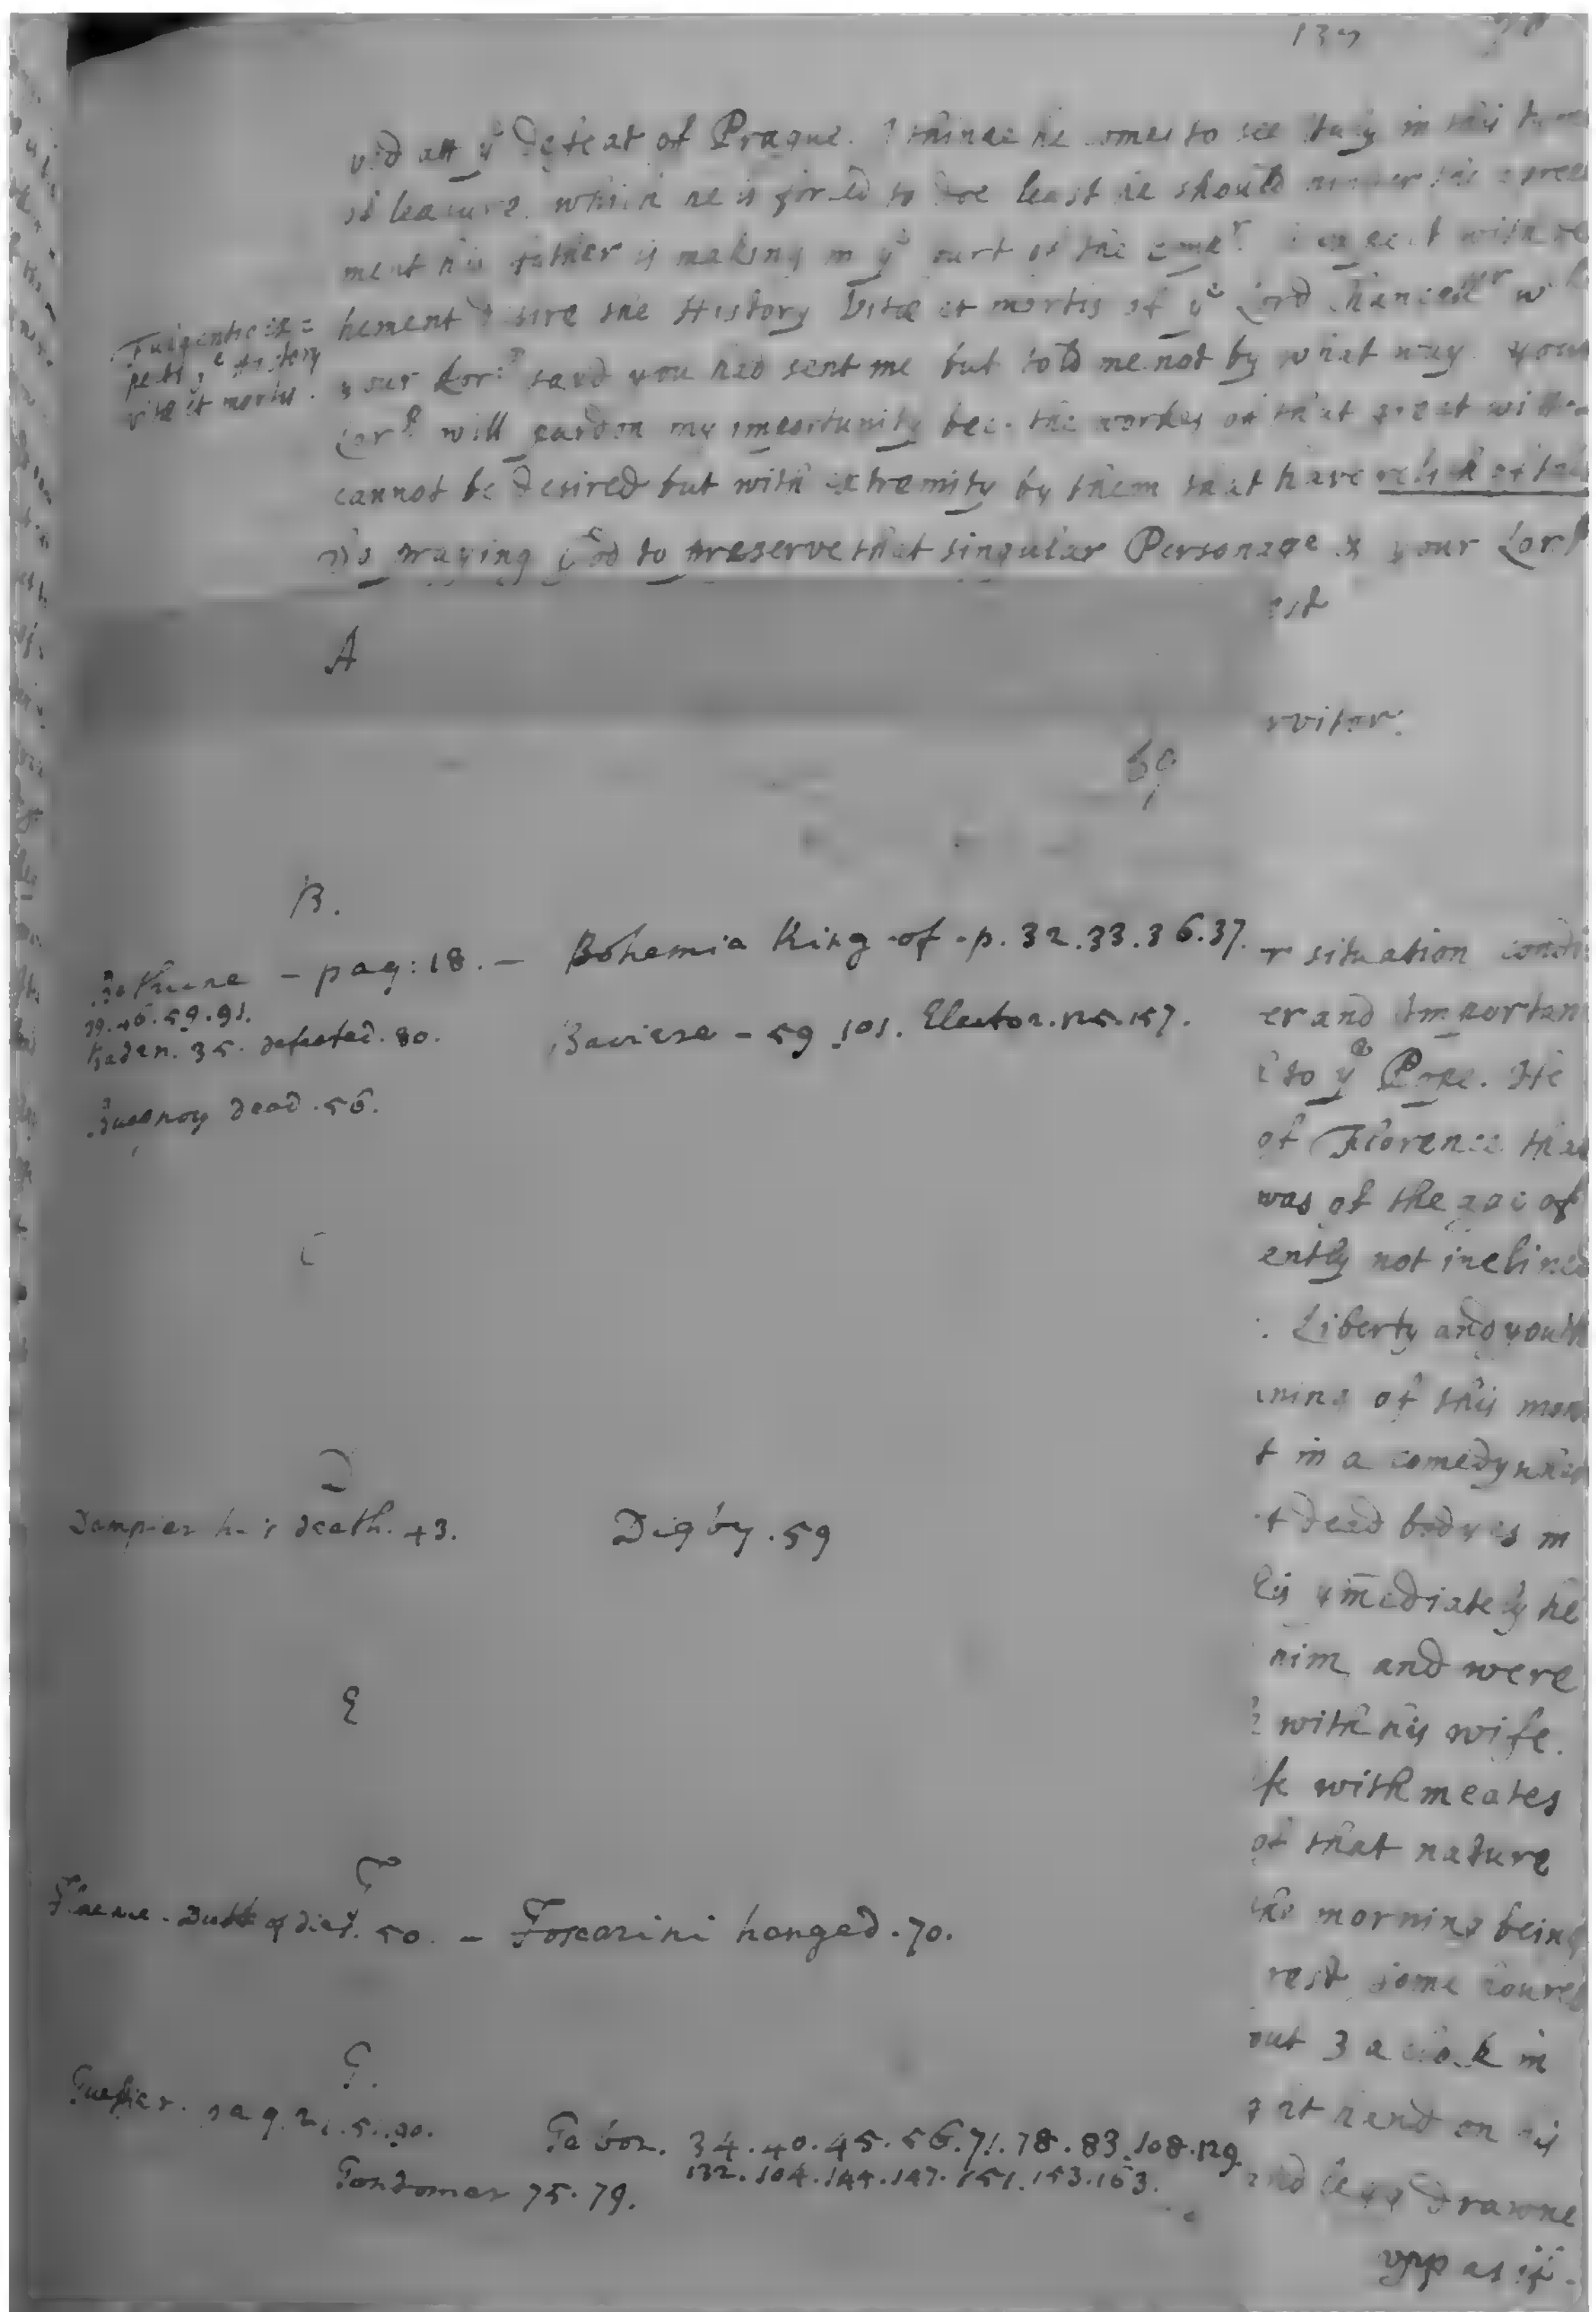 137
ved att yᵉ Defeat of Prague. I thinke he comes to see Italy in this time
of leasure. which he is forced to doe least he should hinder the agree
ment his father is making in yᵉ Court of the empʳ. I expect with ve
hement desire the History Vitæ et mortis of yᵉ Lord Chancellʳ wᶜʰ
your Lorᵖ said you had sent me but told me not by what way your
Lorᵖ will pardon my importunity bec. the workes of that great witt
cannot be desired but with extremity by them that have relish of
So praying God to preserve that singular Personage & your Lorᵖ
Fulgentio ex=
pects yᵉ History
vitæ et mortis.
est
A
rvitor.
69
B.
Bethune – pag: 18. – Bohemia King of p. 32. 33. 36. 37.
29. 46. 59. 91.
Baden. 35. defeated. 80. Baviere – 59 101. Elector. 125. 157.
Buquoy dead. 56.
C
D
Dampier his death. 43. Digby. 59
E
F
50. – Foscarini hanged. 70.
G.
Gabor. 34. 40. 45. 56. 71. 78. 83. 108. 129.
132. 104. 144. 147. 151. 153. 163.
Gondomar 75. 79.
r situation condi
er and Importan
to yᵉ Pope. He
of Florence that
was of the age of
ently not inclined
Liberty and youth
ning of this mon
t in a comedy
t dead bodyes in
his ymediately he
him and were
with his wife.
fe with meates
of that nature
the morning being
rest some houres
out 3 a clock in
ht hand on his
and legg drawne
upp as if